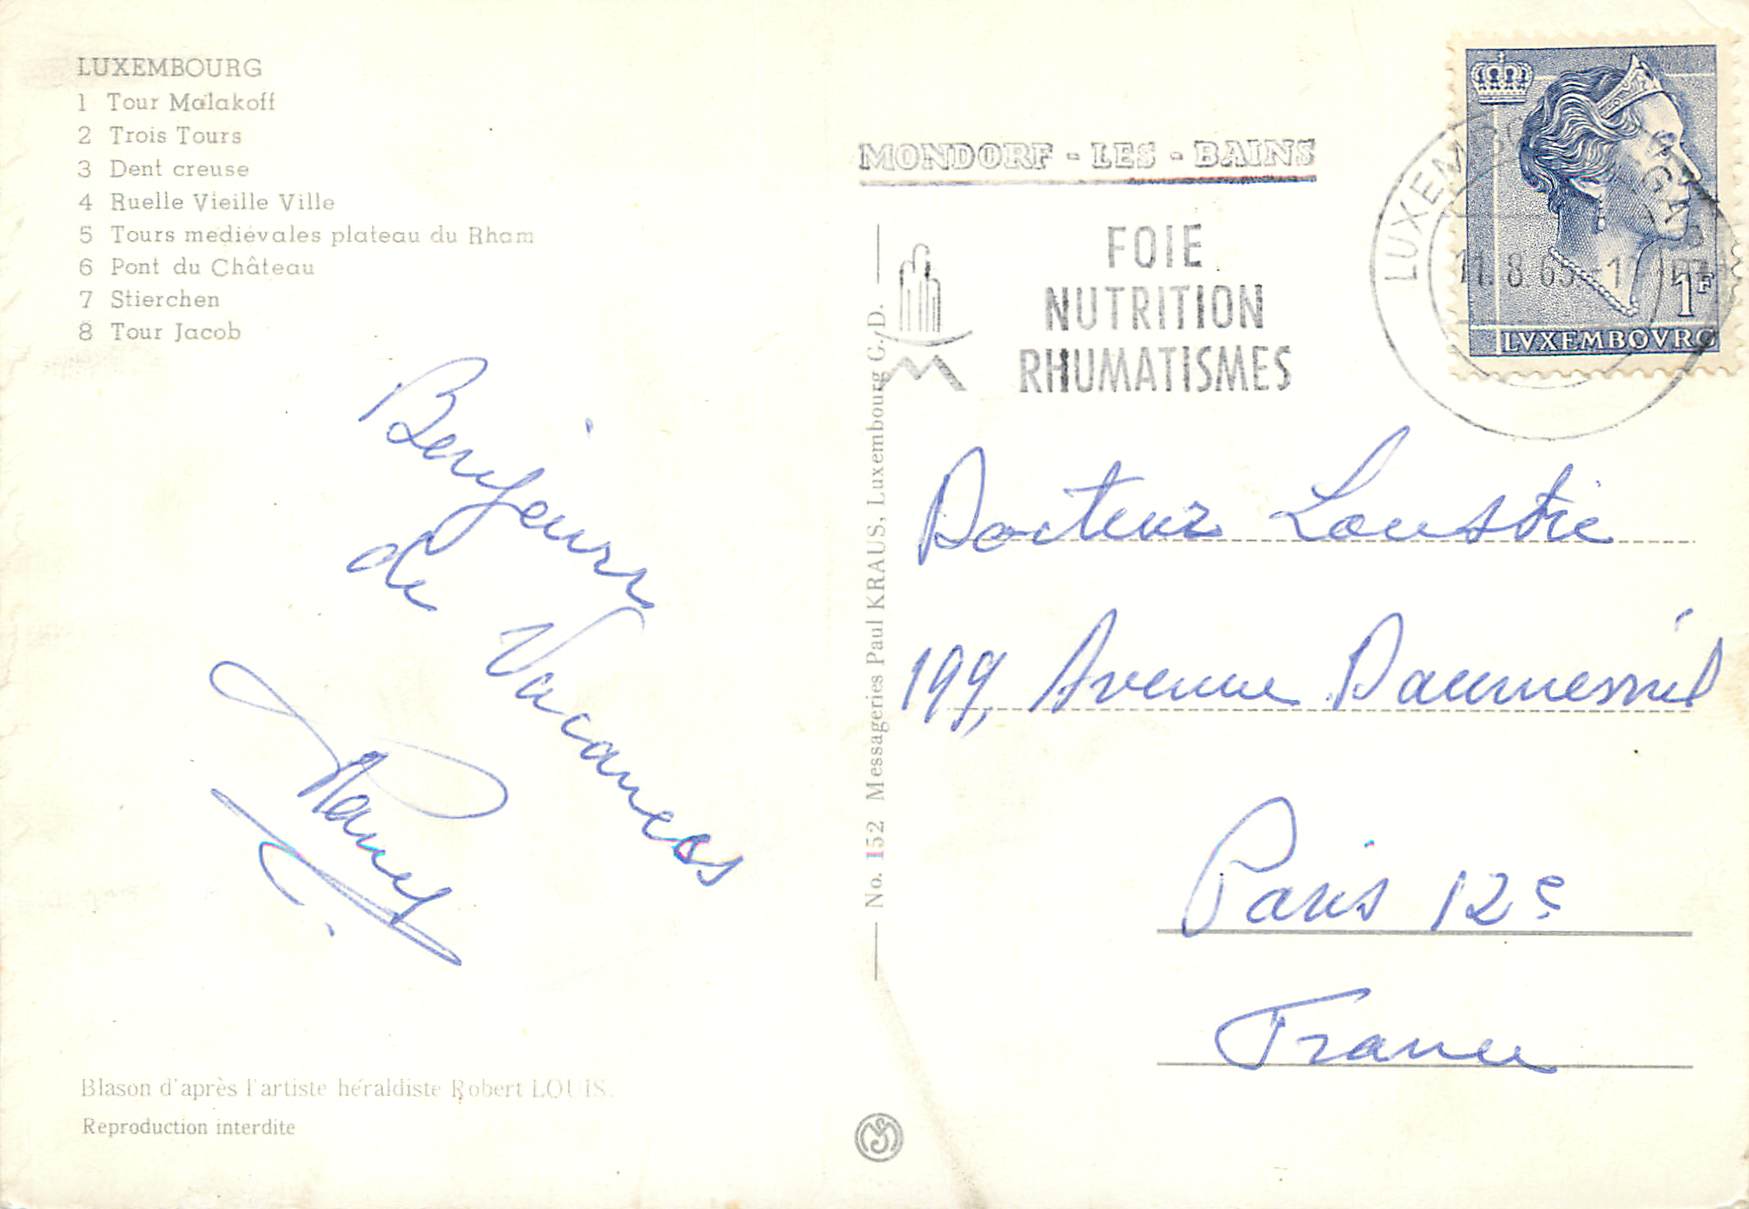 LUXEMBOURG
1 Tour Malakoff
2 Trois Tours
3 Dent creuse
4 Ruelle Vieille Ville
5 Tours mediévales plateau du Rham
6 Pont du Château
7 Stierchen
8 Tour Jacob
Bonjour
de Vacances
Blason d'après l'artiste héraldiste Robert LOUIS.
Reproduction interdite
No. 152 Messageries Paul KRAUS, Luxembourg G.D.
MONDORF - LES - BAINS
FOIE
NUTRITION
RHUMATISMES
LUXEMBOURG
11.8.65
1F
LVXEMBOVRG
Docteur Loustrie
199, Avenue Daumesnil
Paris 12e
France